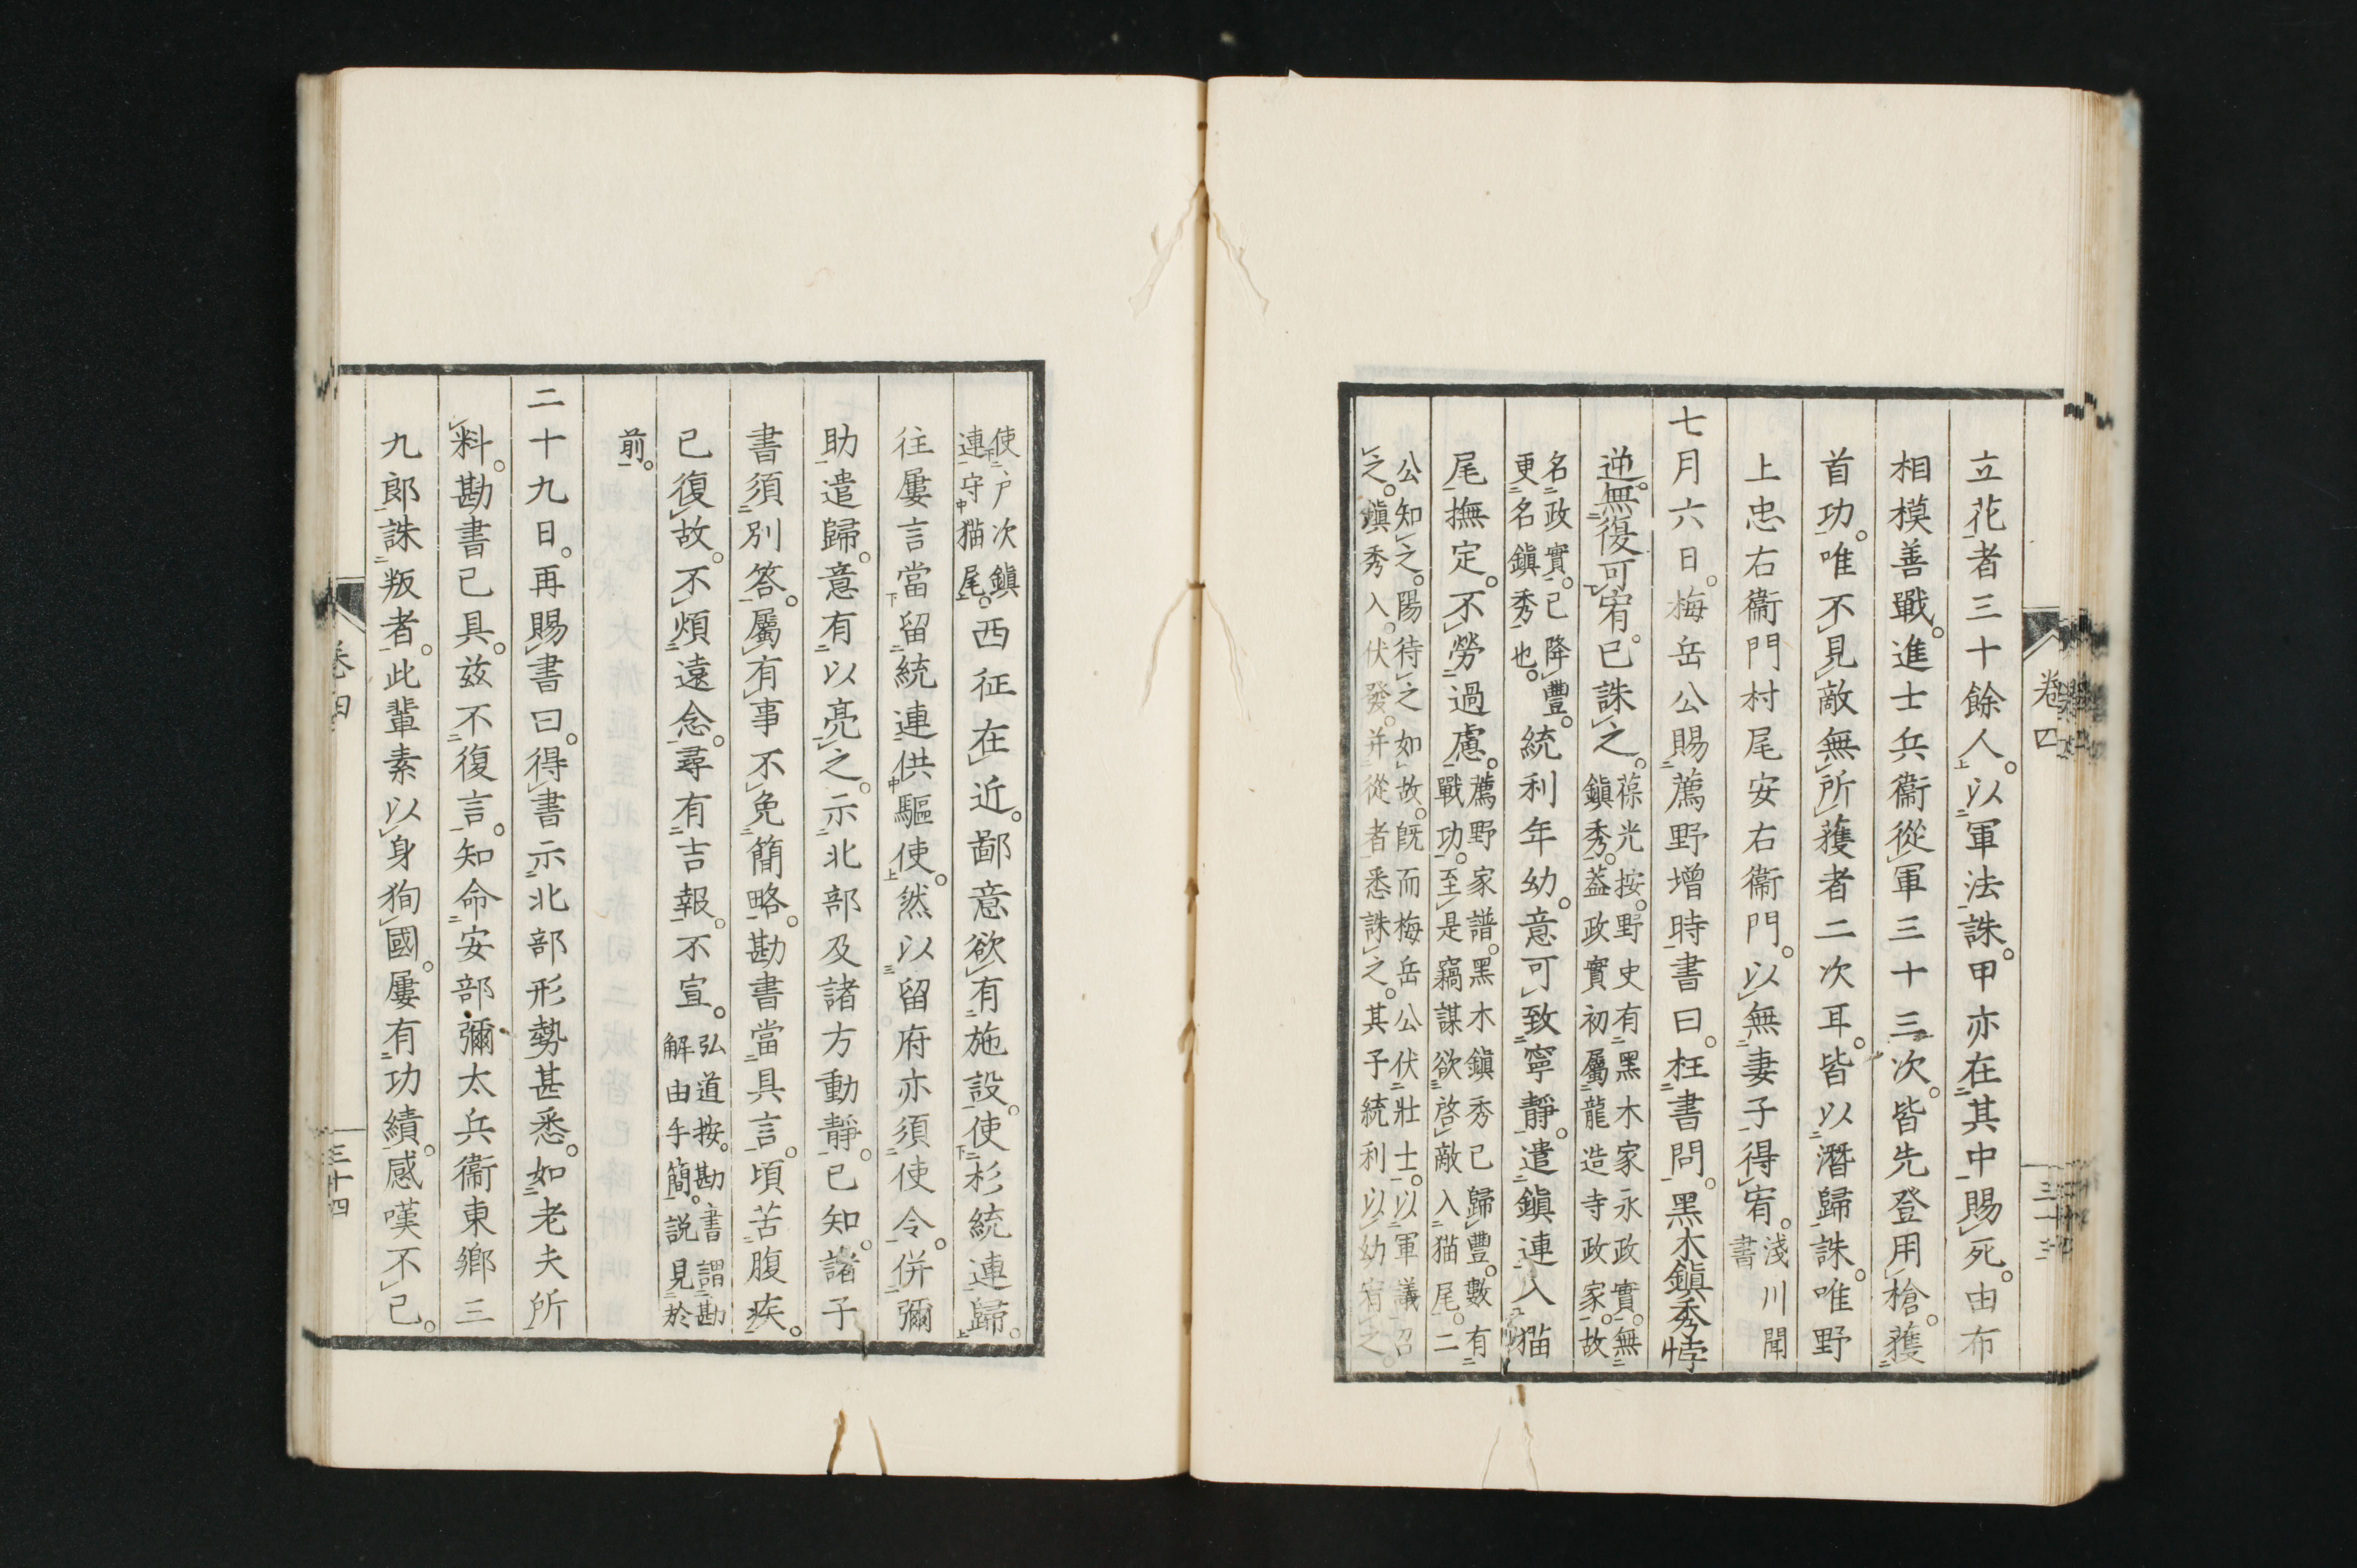 卷四
三十三
立花者三十餘人。以軍法誅。甲亦在其中賜死。由布
相模善戰。進士兵衞從軍三十三次。皆先登用槍。獲
首功。唯不見敵無所獲者二次耳。皆以潛歸誅。唯野
上忠右衞門村尾安右衞門。以無妻子得宥。淺川聞
書
七月六日。梅岳公賜薦野增時書曰。枉書問。黑木鎭秀悖
逆。無復可宥。已誅之。葆光按。野史有黑木家永政實。無
鎭秀。蓋政實初屬龍造寺政家。故
名政實。已降豐。
更名鎭秀也。統利年幼。意可致寧靜。遣鎭連入猫
尾撫定。不勞過慮。薦野家譜。黑木鎭秀已歸豐。數有
戰功。至是竊謀欲啓敵入猫尾。二
公知之。陽待之如故。旣而梅岳公伏壯士。以軍議召
之。鎭秀入。伏發。并從者悉誅之。其子統利以幼宥之。
使戶次鎭
連守猫尾。西征在近。鄙意欲有施設。使杉統連歸。
往屢言當留統連供驅使。然以留府亦須使令。併彌
助遣歸。意有以亮之。示北部及諸方動靜。已知。諸子
書須別答。屬有事不免簡略。勘書當具言。頃苦腹疾。
已復故。不煩遠念。尋有吉報。不宣。弘道按。勘書謂勘
解由手簡。説見於
前。
二十九日。再賜書曰。得書示北部形勢甚悉。如老夫所
料。勘書已具。茲不復言。知命安部彌太兵衞東鄕三
九郎誅叛者。此輩素以身狥國。屢有功績。感嘆不已。
卷四
三十四